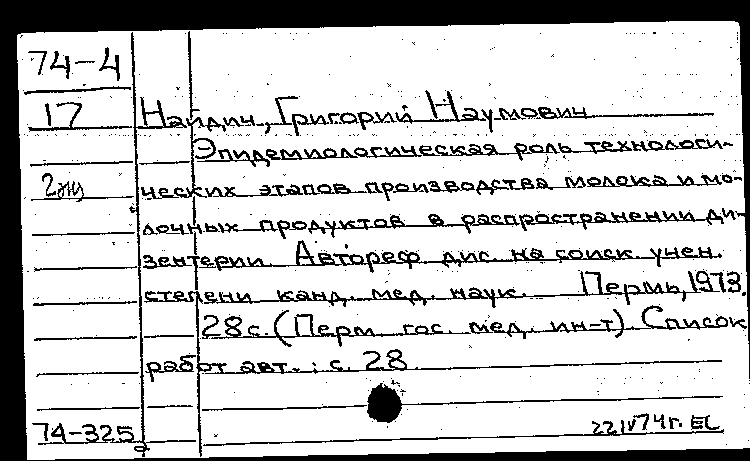 74-4
17 Найдич, Григорий Наумович
Эпидемиологическая роль технологи-
2жц ческих этапов производства молока и мо-
лочных продуктов в распространении ди-
зентерии. Автореф. дис. на соиск. учен.
степени канд. мед. наук. Пермь, 1973.
28 с. (Перм. гос. мед. ин-т). Список
работ авт.: с. 28.
74-325 22 IV 74 г. EL